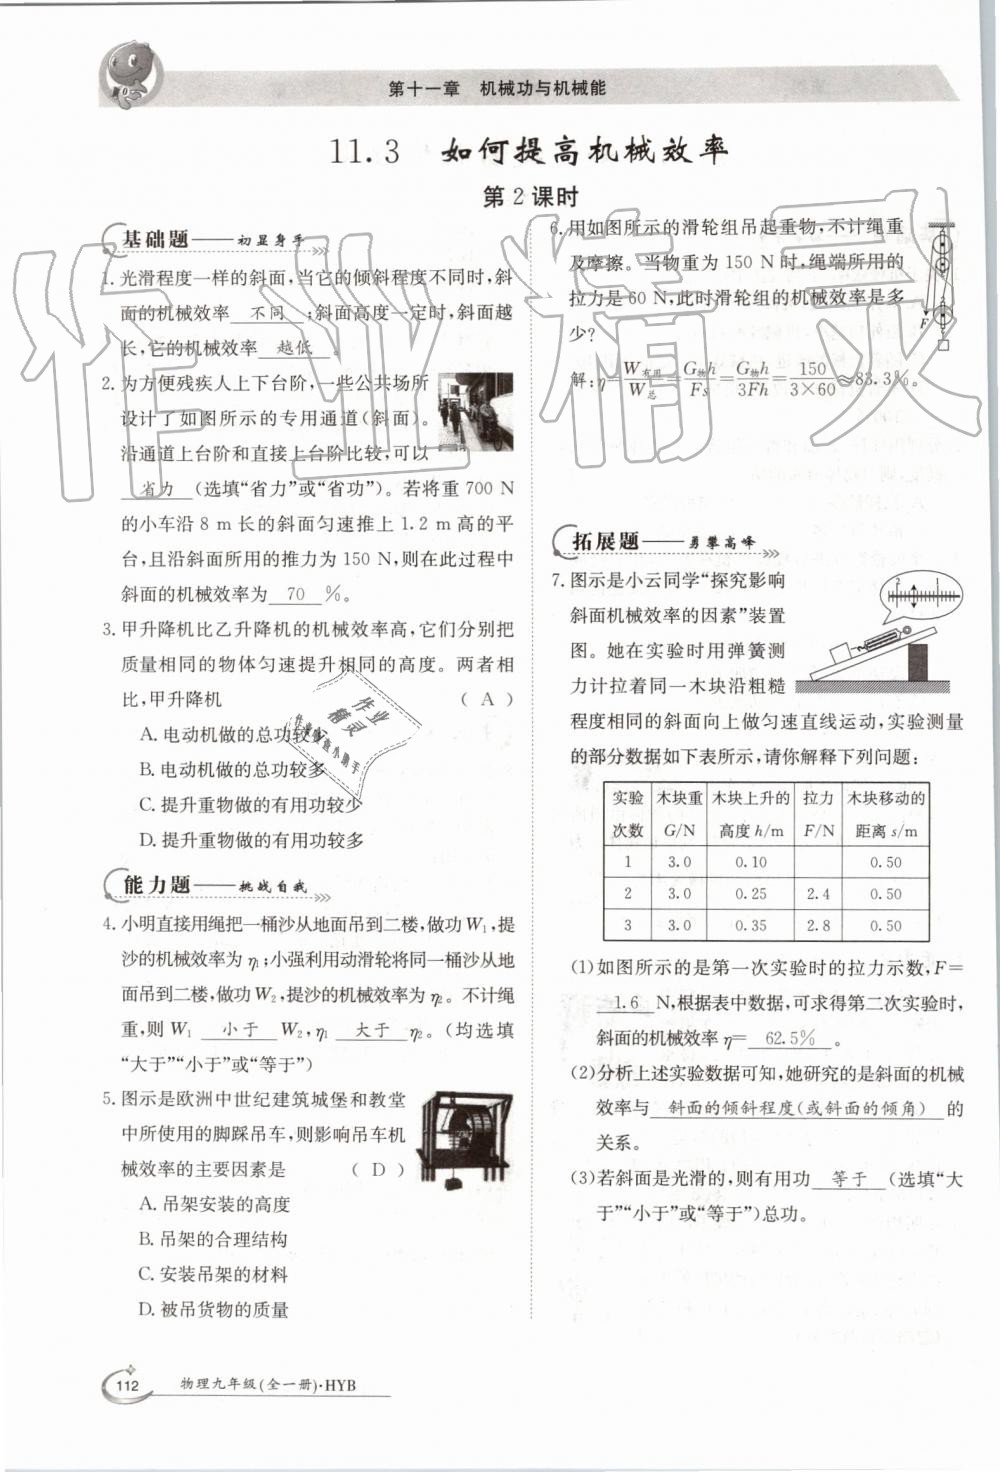 第十一章　机械功与机械能
11.3　如何提高机械效率
第2课时
基础题——初显身手
1. 光滑程度一样的斜面,当它的倾斜程度不同时,斜
面的机械效率 不同 ;斜面高度一定时,斜面越
长,它的机械效率 越低 。
2. 为方便残疾人上下台阶,一些公共场所
设计了如图所示的专用通道(斜面)。
沿通道上台阶和直接上台阶比较,可以
省力 (选填“省力”或“省功”)。若将重 700 N
的小车沿 8 m 长的斜面匀速推上 1.2 m 高的平
台,且沿斜面所用的推力为 150 N,则在此过程中
斜面的机械效率为 70 %。
3. 甲升降机比乙升降机的机械效率高,它们分别把
质量相同的物体匀速提升相同的高度。两者相
比,甲升降机 ( A )
A. 电动机做的总功较少
B. 电动机做的总功较多
C. 提升重物做的有用功较少
D. 提升重物做的有用功较多
能力题——挑战自我
4. 小明直接用绳把一桶沙从地面吊到二楼,做功 W₁,提
沙的机械效率为 η₁;小强利用动滑轮将同一桶沙从地
面吊到二楼,做功 W₂,提沙的机械效率为 η₂。不计绳
重,则 W₁ 小于 W₂,η₁ 大于 η₂。(均选填
“大于”“小于”或“等于”)
5. 图示是欧洲中世纪建筑城堡和教堂
中所使用的脚踩吊车,则影响吊车机
械效率的主要因素是 ( D )
A. 吊架安装的高度
B. 吊架的合理结构
C. 安装吊架的材料
D. 被吊货物的质量
6. 用如图所示的滑轮组吊起重物,不计绳重
及摩擦。当物重为 150 N 时,绳端所用的
拉力是 60 N,此时滑轮组的机械效率是多
少?
F
解:η=W有用/W总=G物h/Fs=G物h/3Fh=150/3×60≈83.3%。
拓展题——勇攀高峰
7. 图示是小云同学“探究影响
斜面机械效率的因素”装置
图。她在实验时用弹簧测
力计拉着同一木块沿粗糙
程度相同的斜面向上做匀速直线运动,实验测量
的部分数据如下表所示,请你解释下列问题:
2 1
实验次数 木块重G/N 木块上升的高度 h/m 拉力F/N 木块移动的距离 s/m
1 3.0 0.10 0.50
2 3.0 0.25 2.4 0.50
3 3.0 0.35 2.8 0.50
(1)如图所示的是第一次实验时的拉力示数,F=
1.6 N,根据表中数据,可求得第二次实验时,
斜面的机械效率 η= 62.5% 。
(2)分析上述实验数据可知,她研究的是斜面的机械
效率与 斜面的倾斜程度(或斜面的倾角) 的
关系。
(3)若斜面是光滑的,则有用功 等于 (选填“大
于”“小于”或“等于”)总功。
112 物理九年级(全一册)·HYB
作业精灵
作业
精灵